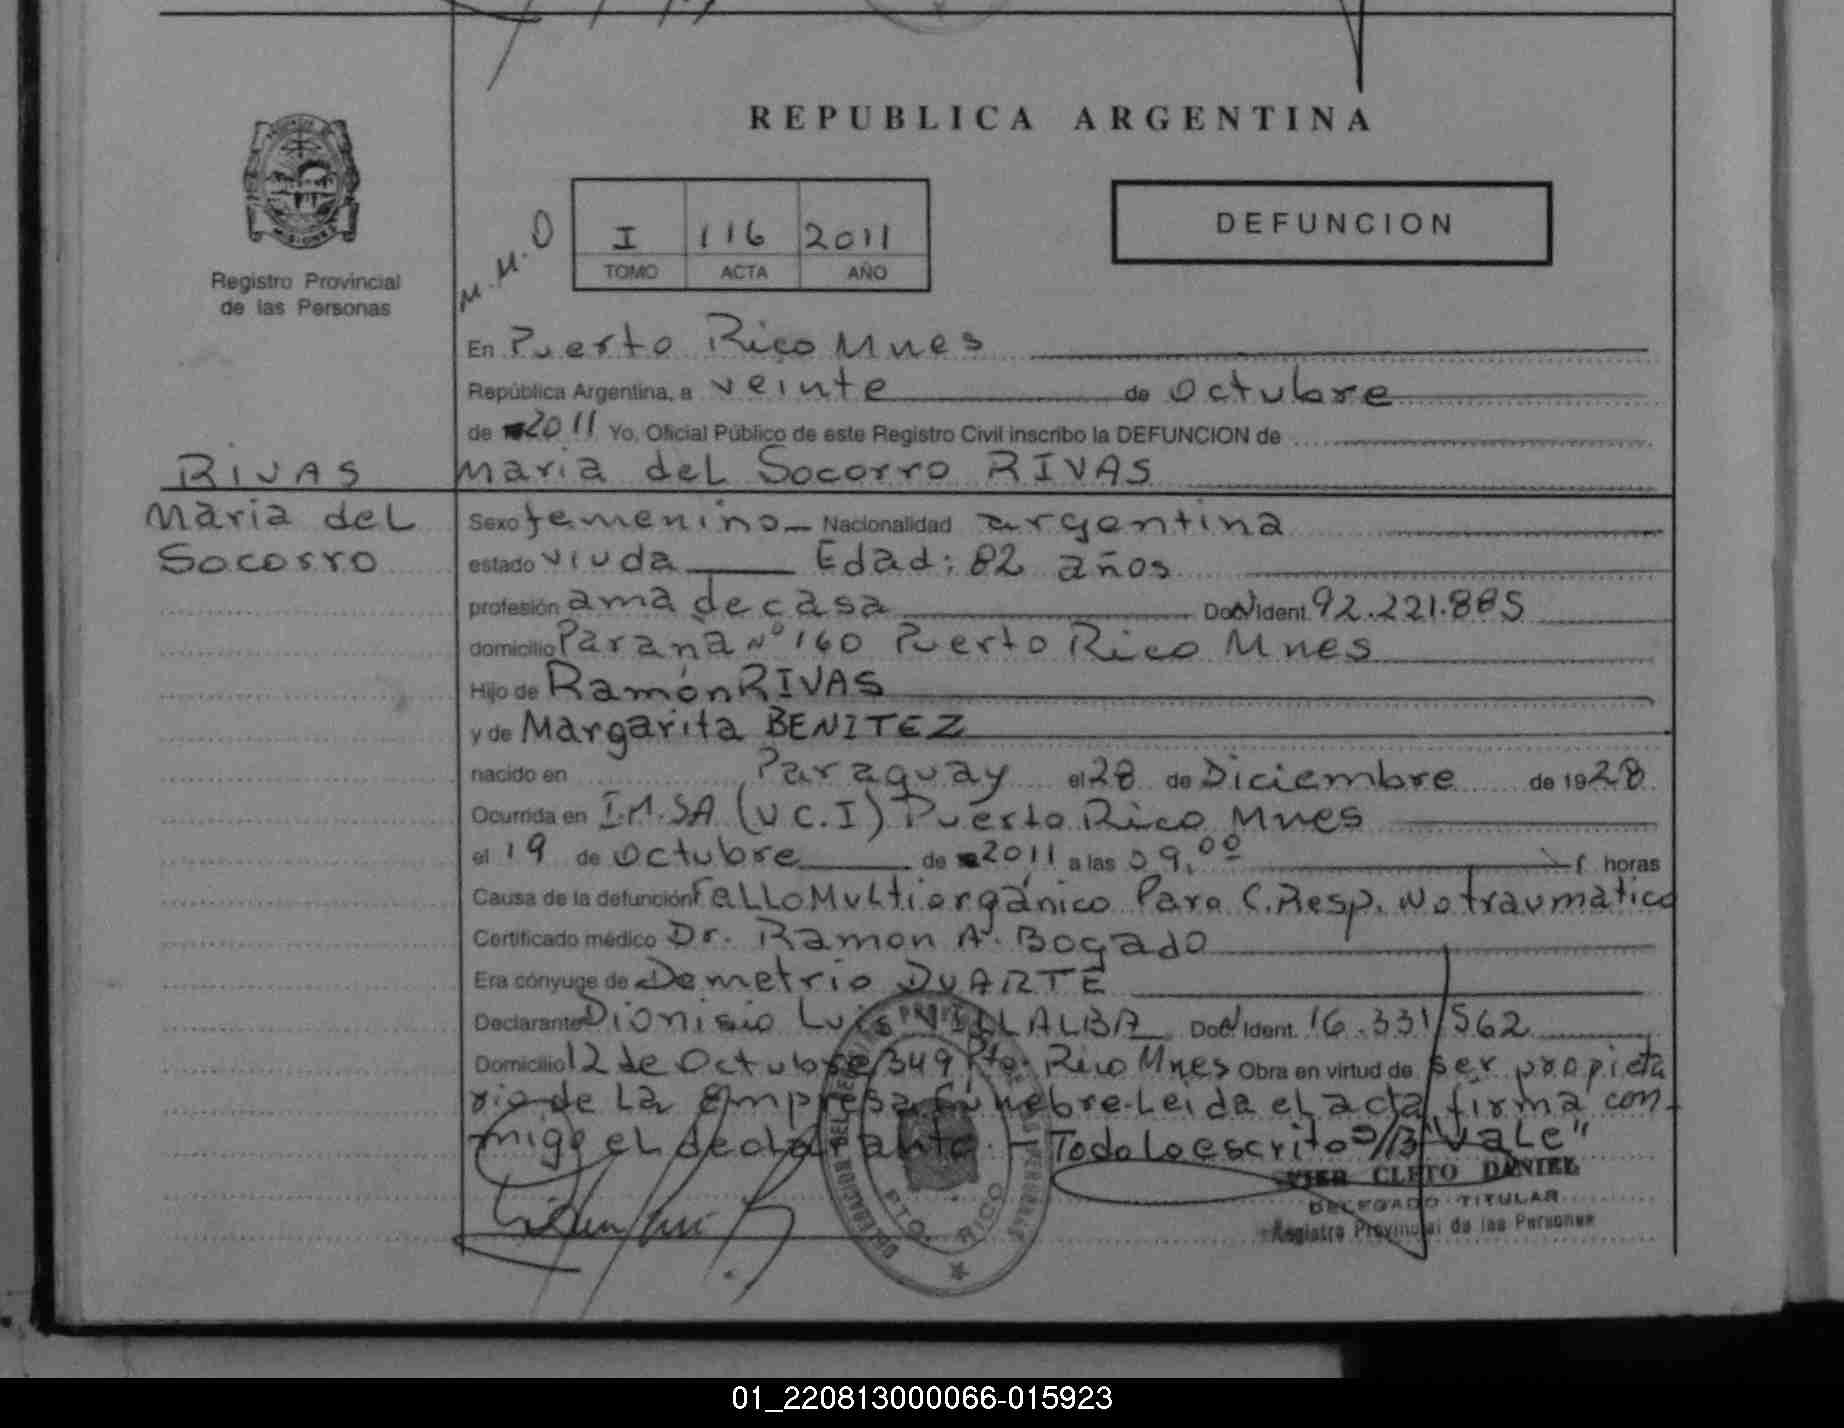 REPUBLICA ARGENTINA
PROVINCIA DE
MISIONES
Registro Provincial
de las Personas
M.M.D
I 116 2011
TOMO ACTA AÑO
DEFUNCION
En Puerto Rico Mnes
República Argentina, a veinte de octubre
de 2011 Yo, Oficial Público de este Registro Civil inscribo la DEFUNCION de
RIVAS
Maria del Socorro RIVAS
Maria del
Socorro
Sexo femenino Nacionalidad argentina
estado viuda Edad: 82 años
profesión ama de casa Doc N Ident. 92.221.885
domicilio Paraná Nº 160 Puerto Rico Mnes
Hijo de Ramón RIVAS
y de Margarita BENITEZ
nacido en Paraguay el 28 de Diciembre de 1928
Ocurrida en I.M.SA (U C.I) Puerto Rico Mnes
el 19 de octubre de 2011 a las 09,00 horas
Causa de la defunción Fallo Multiorgánico Paro C.Resp. No traumático
Certificado médico Dr. Ramon A. Bogado
Era cónyuge de Demetrio DUARTE
Declarante Dionisio Luis VILLALBA Doc N Ident. 16.331.562
Domicilio 12 de Octubre 349 Pto. Rico Mnes Obra en virtud de ser propieta
rio de La empresa fúnebre. Leida el acta, firma con
migo el declarante. - Todo lo escrito S/B "Vale"
CLETO DANIEL
DELEGADO TITULAR
Registro Provincial de las Personas
PTO. RICO
01_220813000066-015923